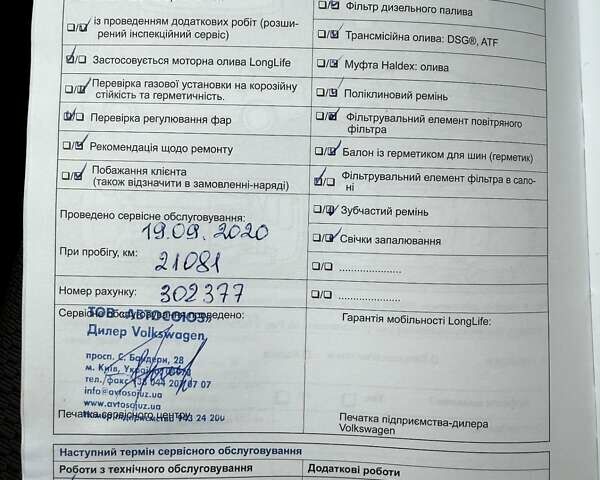 із проведенням додаткових робіт (розши-
рений інспекційний сервіс)
Застосовується моторна олива LongLife
Перевірка газової установки на корозійну
стійкість та герметичність.
Перевірка регулювання фар
Рекомендація щодо ремонту
Побажання клієнта
(також відзначити в замовленні-наряді)
Проведено сервісне обслуговування:
19.09.2020
При пробігу, км:
21081
Номер рахунку:
302377
Сервісне обслуговування проведено:
ТОВ «АВТОСОЮЗ»
Дилер Volkswagen
просп. С. Бандери, 28
м. Київ, Україна
тел./факс +38 044 207 07 07
info@avtosojuz.ua
www.avtosojuz.ua
Печатка сервісного центру
Фільтр дизельного палива
Трансмісійна олива: DSG®, ATF
Муфта Haldex: олива
Поліклиновий ремінь
Фільтрувальний елемент повітряного
фільтра
Балон із герметиком для шин (герметик)
Фільтрувальний елемент фільтра в сало-
ні
Зубчастий ремінь
Свічки запалювання
......................
......................
Гарантія мобільності LongLife:
Печатка підприємства-дилера
Volkswagen
Наступний термін сервісного обслуговування
Роботи з технічного обслуговування
Додаткові роботи